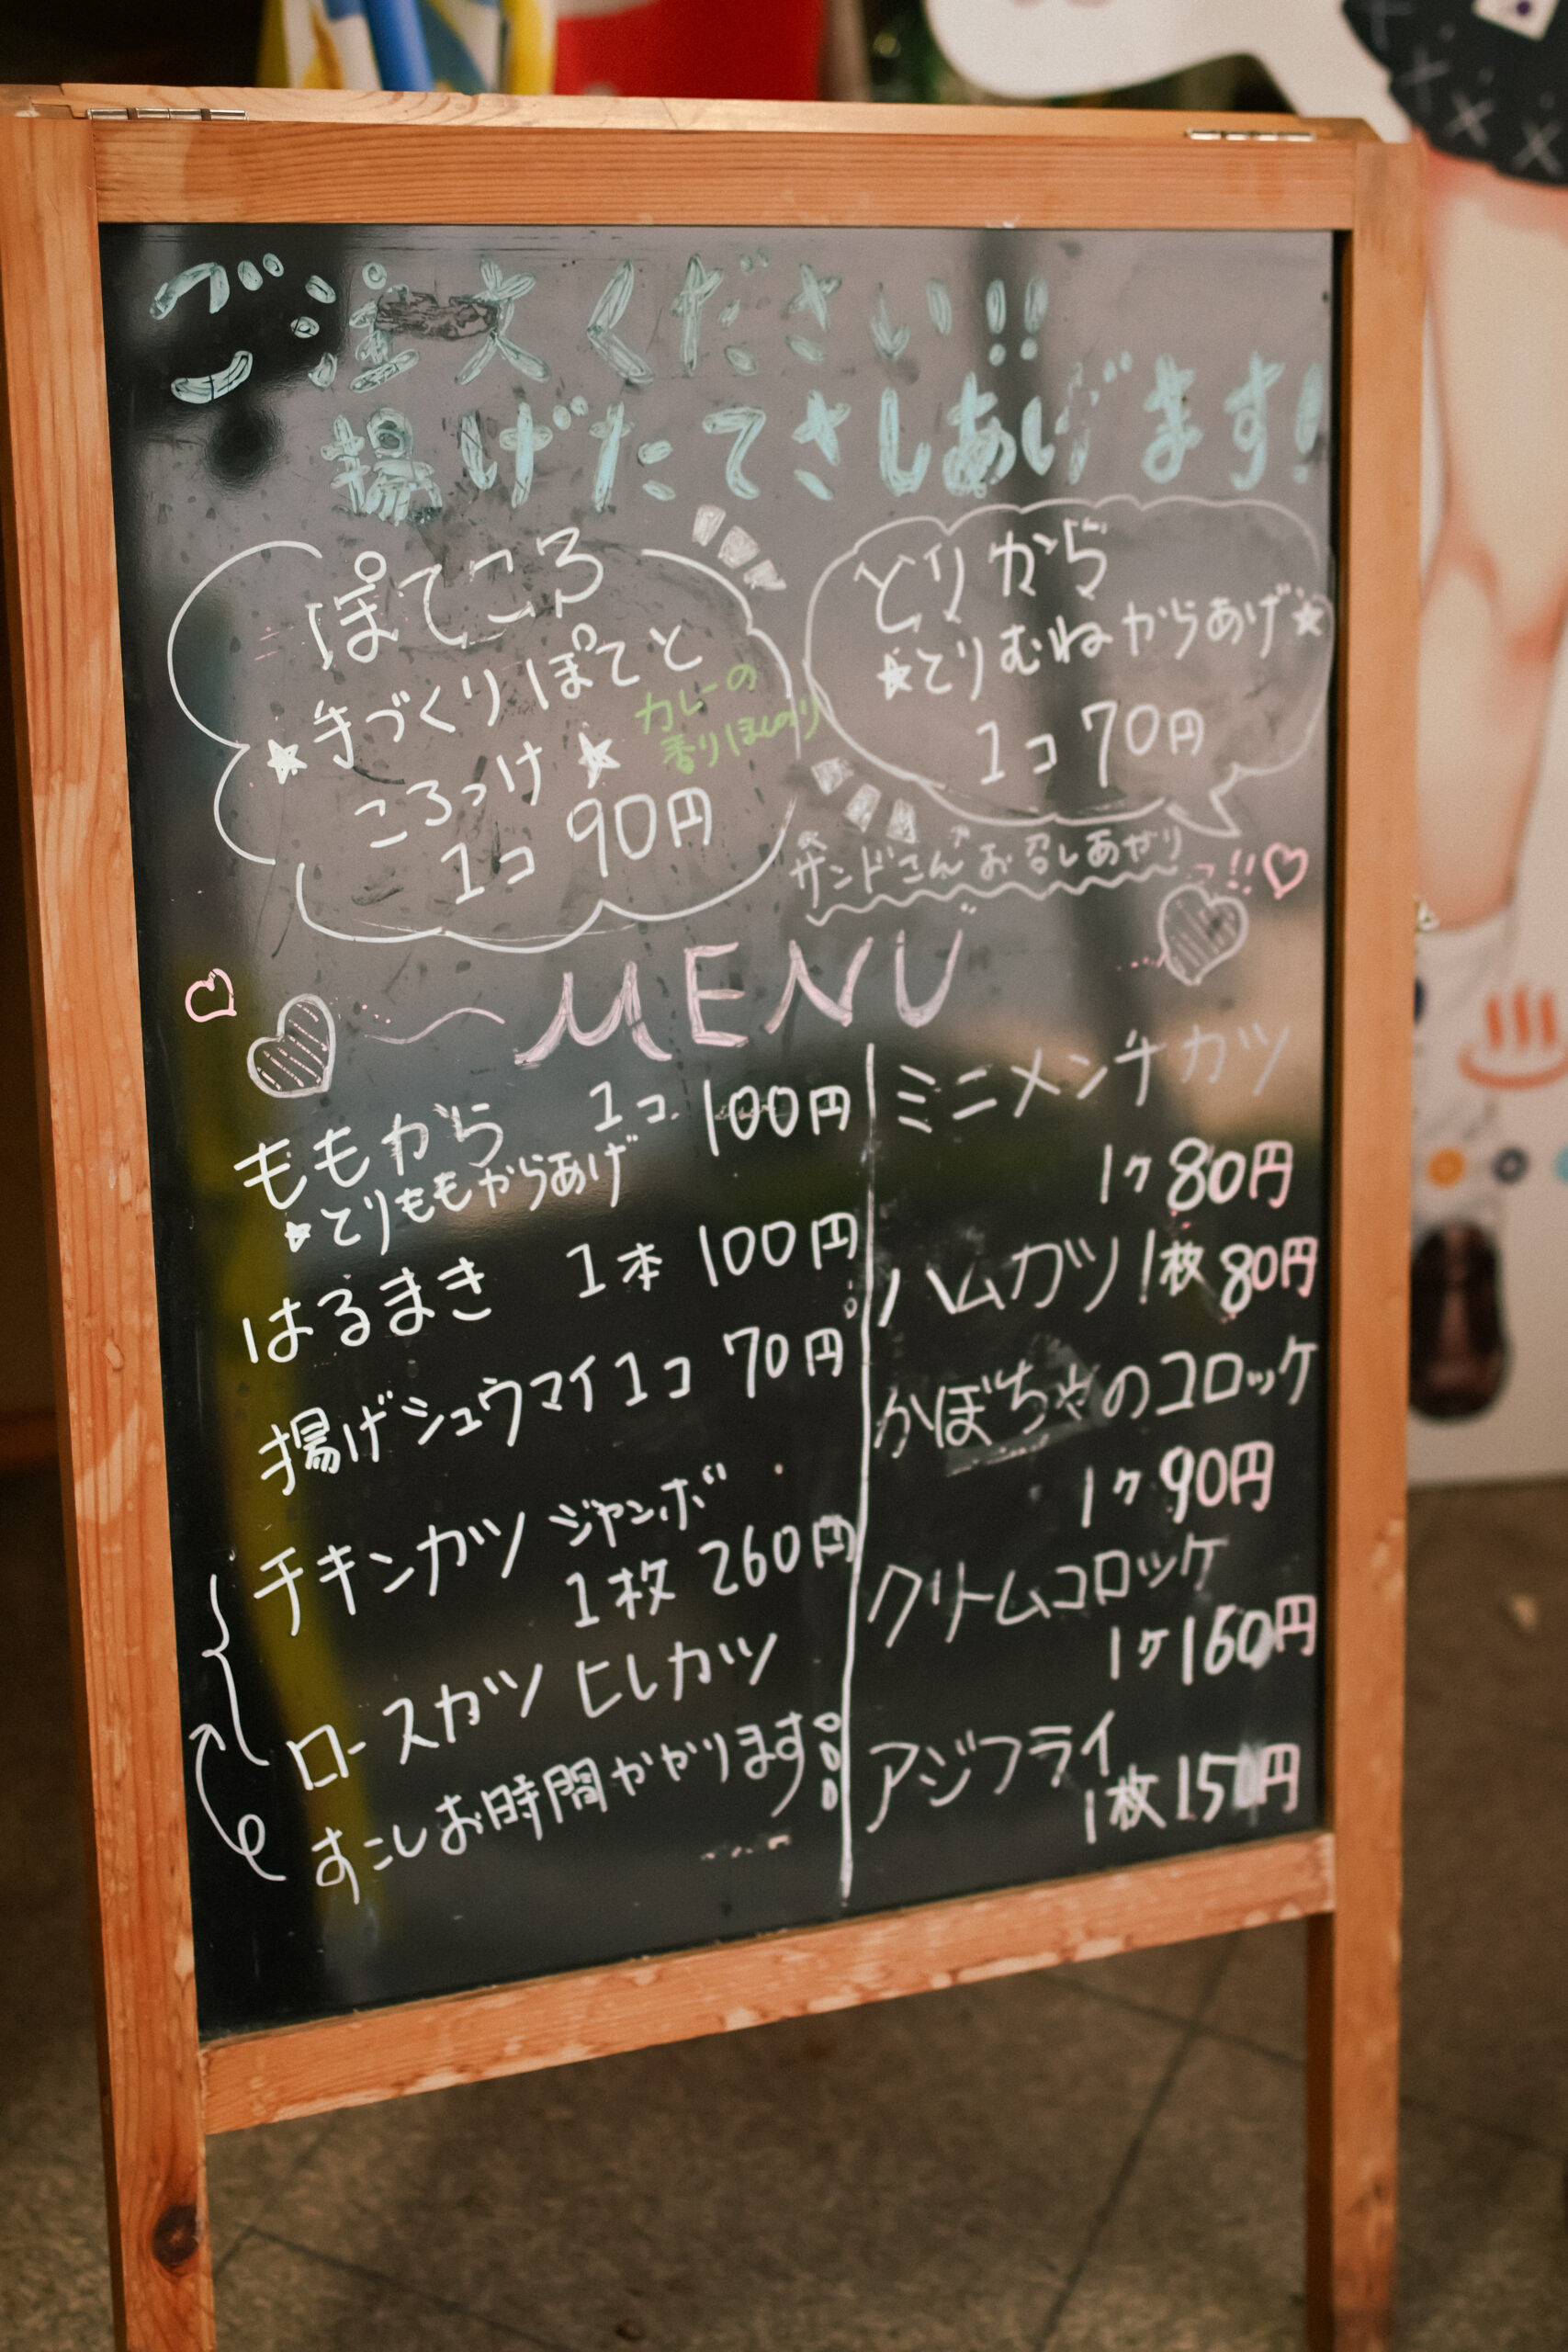 ご注文ください!!
揚げたてさしあげます!
ぽてころ
★手づくりぽてと
ころっけ★
カレーの
香りほんのり
1コ 90円
とりから
★とりむねからあげ★
1コ 70円
サンドさんお召しあがり
!!
MENU
ももから 1コ 100円
★とりももからあげ
はるまき 1本 100円
揚げシュウマイ 1コ 70円
チキンカツ ジャンボ
1枚 260円
ロースカツ ヒレカツ
すこしお時間かかります
ミニメンチカツ
1ケ 80円
ハムカツ 1枚 80円
かぼちゃのコロッケ
1ケ 90円
クリームコロッケ
1ケ 160円
アジフライ
1枚 150円